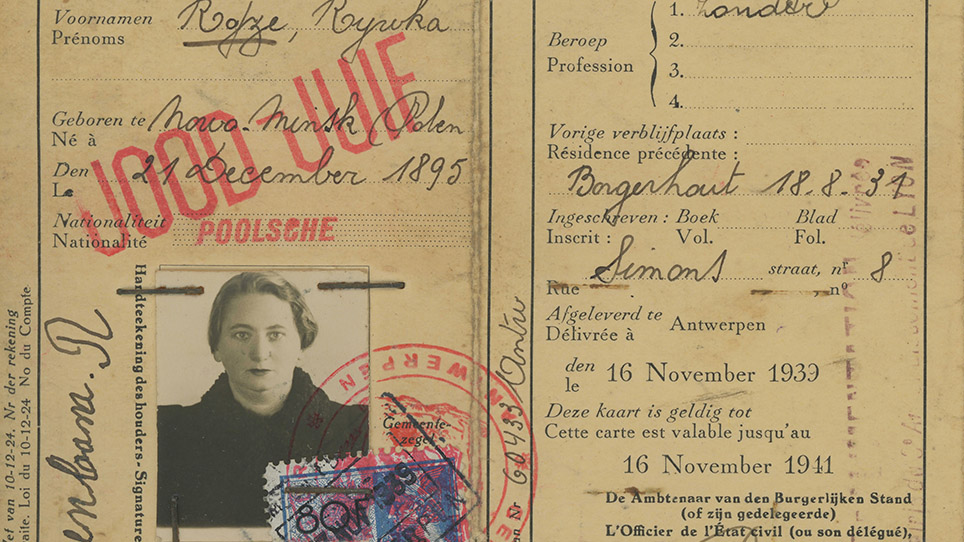 Voornamen
Prénoms
Rojze, Rywka
JOOD-JUIF
Geboren te
Né à
Nowo-Minsk (Polen
Den
Le
21 December 1895
Nationaliteit
Nationalité
POOLSCHE
Handteekening des houders - Signature
et van 10-12-24. Nr der rekening
Loi du 10-12-24 No du Compte
Gemeente-
zegel
ANTWERPEN
Beroep
Profession
1. zonder
2.
3.
4.
Vorige verblijfplaats :
Résidence précédente :
Borgerhout 18.8.31
Ingeschreven : Boek Blad
Inscrit : Vol. Fol.
Simons straat, nr 8
Rue nº
Afgeleverd te
Délivrée à
Antwerpen
den
le
16 November 1939
Deze kaart is geldig tot
Cette carte est valable jusqu'au
16 November 1941
De Ambtenaar van den Burgerlijken Stand
(of zijn gedelegeerde)
L'Officier de l'État civil (ou son délégué),